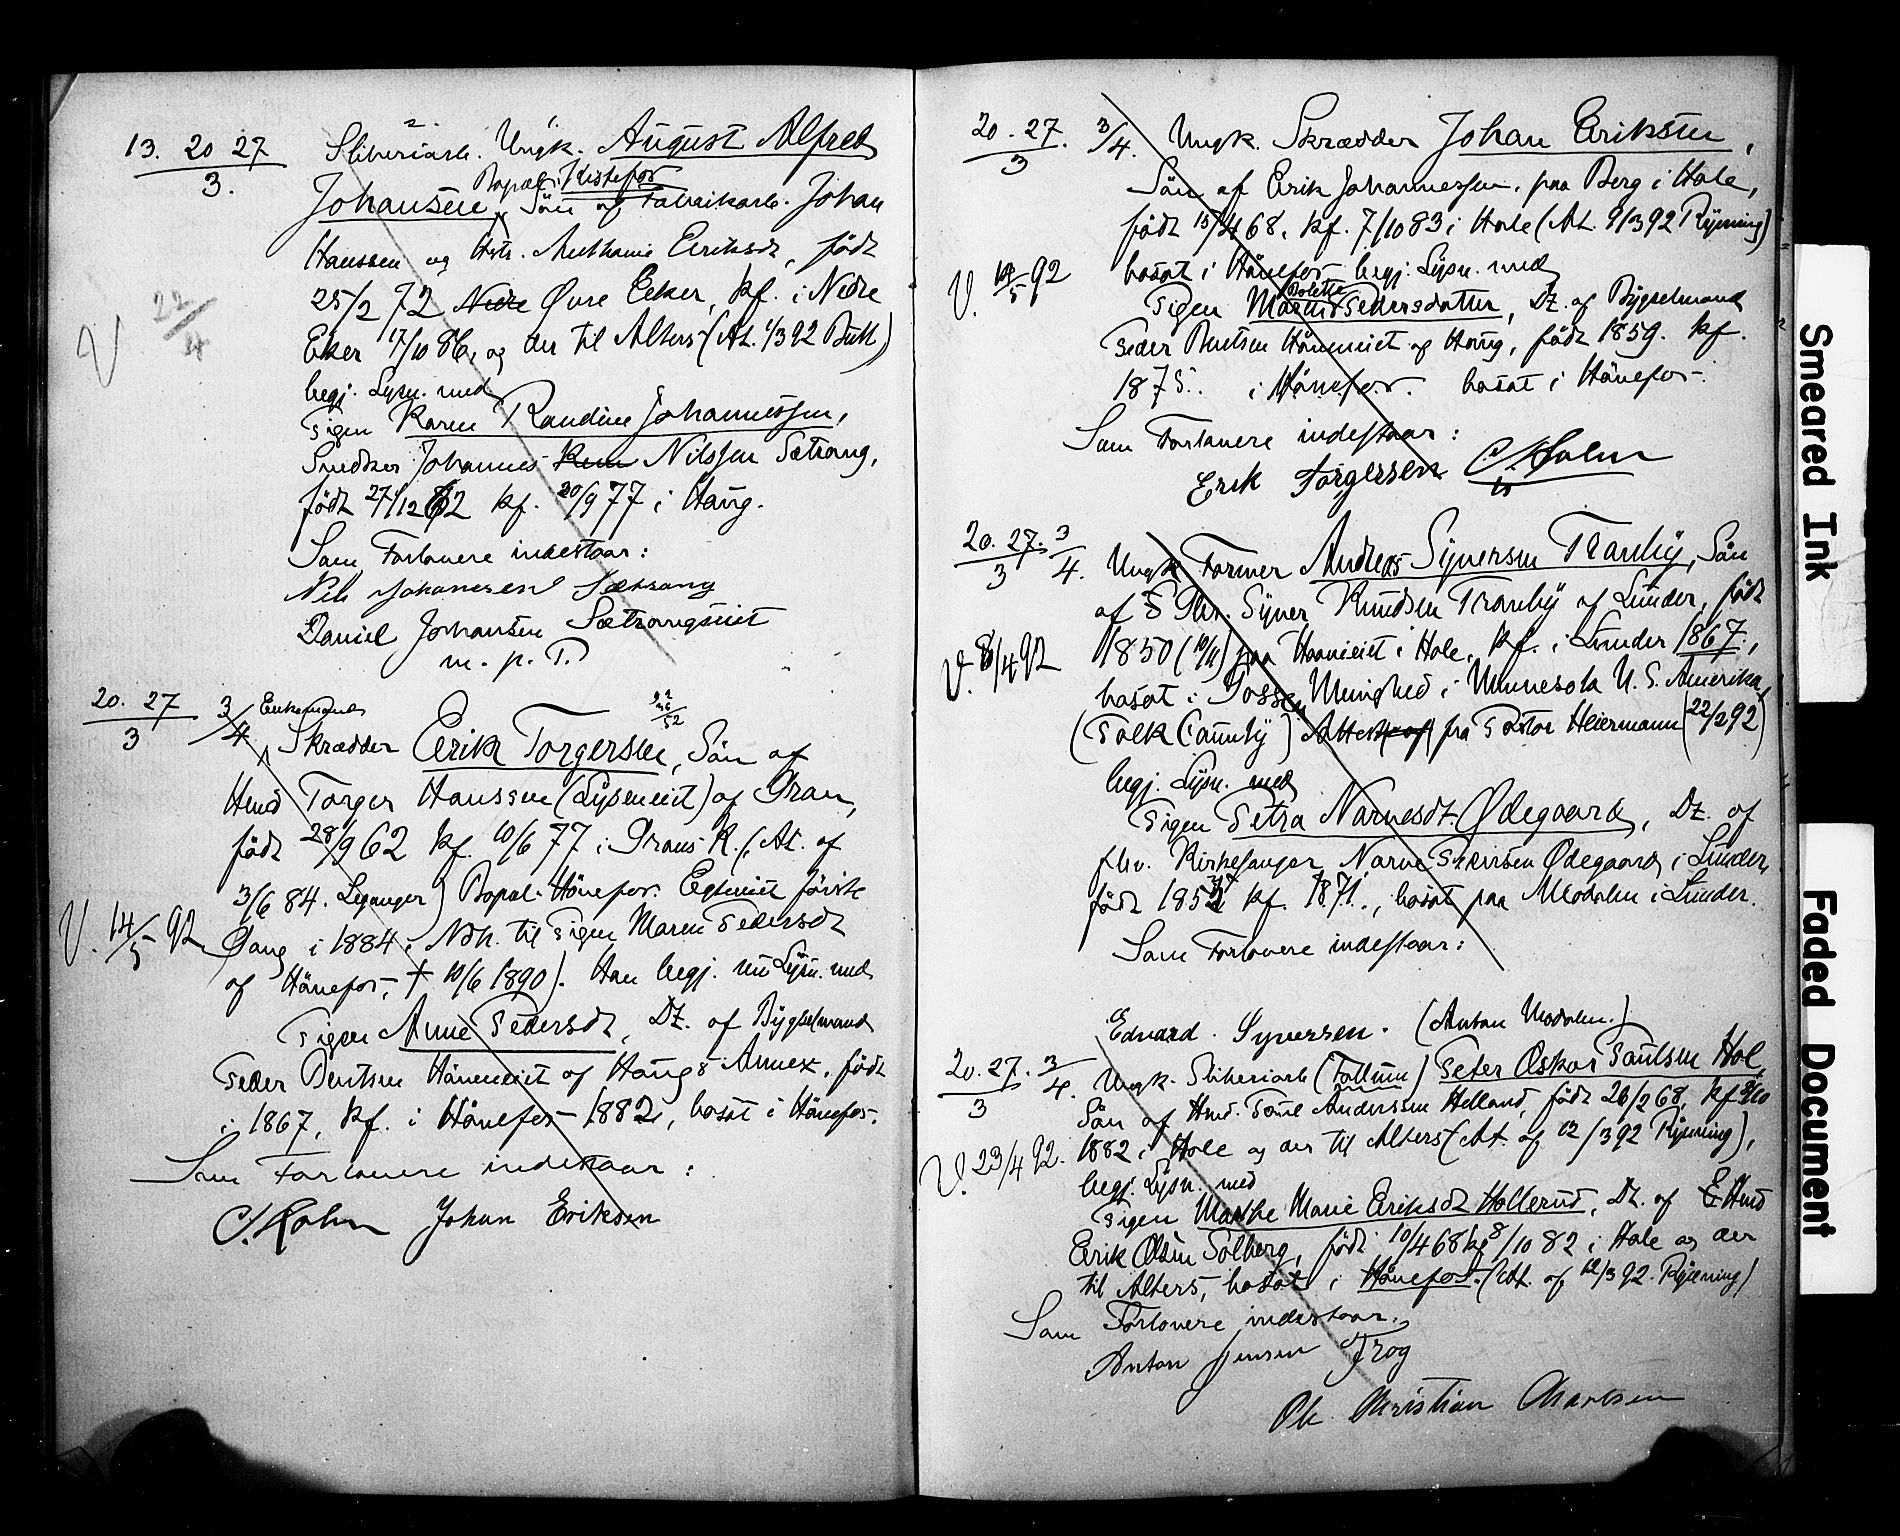 13. 20 27
3.
Sliberiarb. Ungk. August Alfred
Bopæl: Kistefos
Johansen, Sön af Fabrikarb. Johan
Hanssen og Hstr. Anthanie Eriksdt, födt
25/2 72 Nedre Øvre Eeker, kf. i Nedre
Eker 17/10 86, og der til Alters (At. 1/3 92 Bull)
begj. Lysn. med
V 22/4
Pigen Karen Randine Johannessen,
Snedker Johannes Nilssen Sætrang,
födt 27/12 62 kf. 30/9 77 i Haug.
Som Forlovere indestaar:
Nils Johannesen Sætrang
Daniel Johansen Sætrangseiet
m. p. P.
20. 27 3/4
3
Enkemand
Skrædder Erik Torgersen, Sön af
Hmd Torger Hanssen (Lyseneiet) af Gran,
födt 28/9 62 kf. 10/6 77 i Grans K. (At. af
3/6 84. Leganger) Bopæl. Hönefos. Egteviet förste
V. 14/5 92
Gang i 1884 i Ndh. til Pigen Maren Pedersdt
af Hönefos, † 10/6 1890). Han begj. nu Lysn. med
Pigen Anne Pedersdt, Dt. af Bygselmand
Peder Bentsen Höneneiet af Haugs Annex, födt
i 1867, kf. i Hönefos 1882, bosat i Hönefos.
Som Forlovere indestaar:
C. Holm Johan Eriksen
20. 27. 3/4.
3
Ungk. Skrædder Johan Eriksen,
Sön af Erik Johannessen, paa Berg i Hole,
födt 15/4 68, kf. 7/10 83 i Hole (At. 9/3 92 Ryning)
V. 14/5 92
bosat i Hönefos begj. Lysn. med
Bolette
Pigen Maren Pedersdatter, Dt. af Bygselmand
Peder Bentsen Höneneiet af Haug, födt 1859. kf.
1875. i Hönefos. bosat i Hönefos.
Som Forlovere indestaar:
Erik Torgersen C. Holm
20. 27. 3/4.
3
Ungk. Former Andreas Syversen Tranby, Sön
af Syver Knudsen Tranby af Lunder, födt
1850 (10/11) paa Hovseiet i Hole, kf. i Lunder 1867,
V. 8/4 92
bosat i Fossen Menighed i Minnesota U. S. Amerika
(Polk County) Attest af fra Pastor Heiermann (22/2 92)
begj. Lysn. med
Pigen Petra Narvesdt. Ødegaard, Dt. af
fhv. Kirkesanger Narve Ødegaard i Lunder,
födt 1852 kf. 1871., bosat paa Modalen i Lunder.
Som Forlovere indestaar:
Edvard. Syversen. (Anton Modalen.)
20. 27. 3/4.
3
Ungk. Sliberiarb (Follum) Peter Oskar Paulsen Hol,
Sön af Hmd. Paul Andersen Helland, födt 26/2 68, kf 8/10
V. 23/4 92.
1882 i Hole og der til Alters (At. af 12/3 92 Ryning),
begj. Lysn. med
Pigen Marthe Marie Eriksdt Hollerud, Dt. af Hmd
Erik Olsen Solberg, födt 10/4 68 kf 8/10 82 i Hole og der
til Alters, bosat i Hönefos. (At. af 12/3 92. Ryning)
Som Forlovere indestaar:
Anton Jensen Frog
Ole Christian Martsen
Smeared Ink
Faded Document